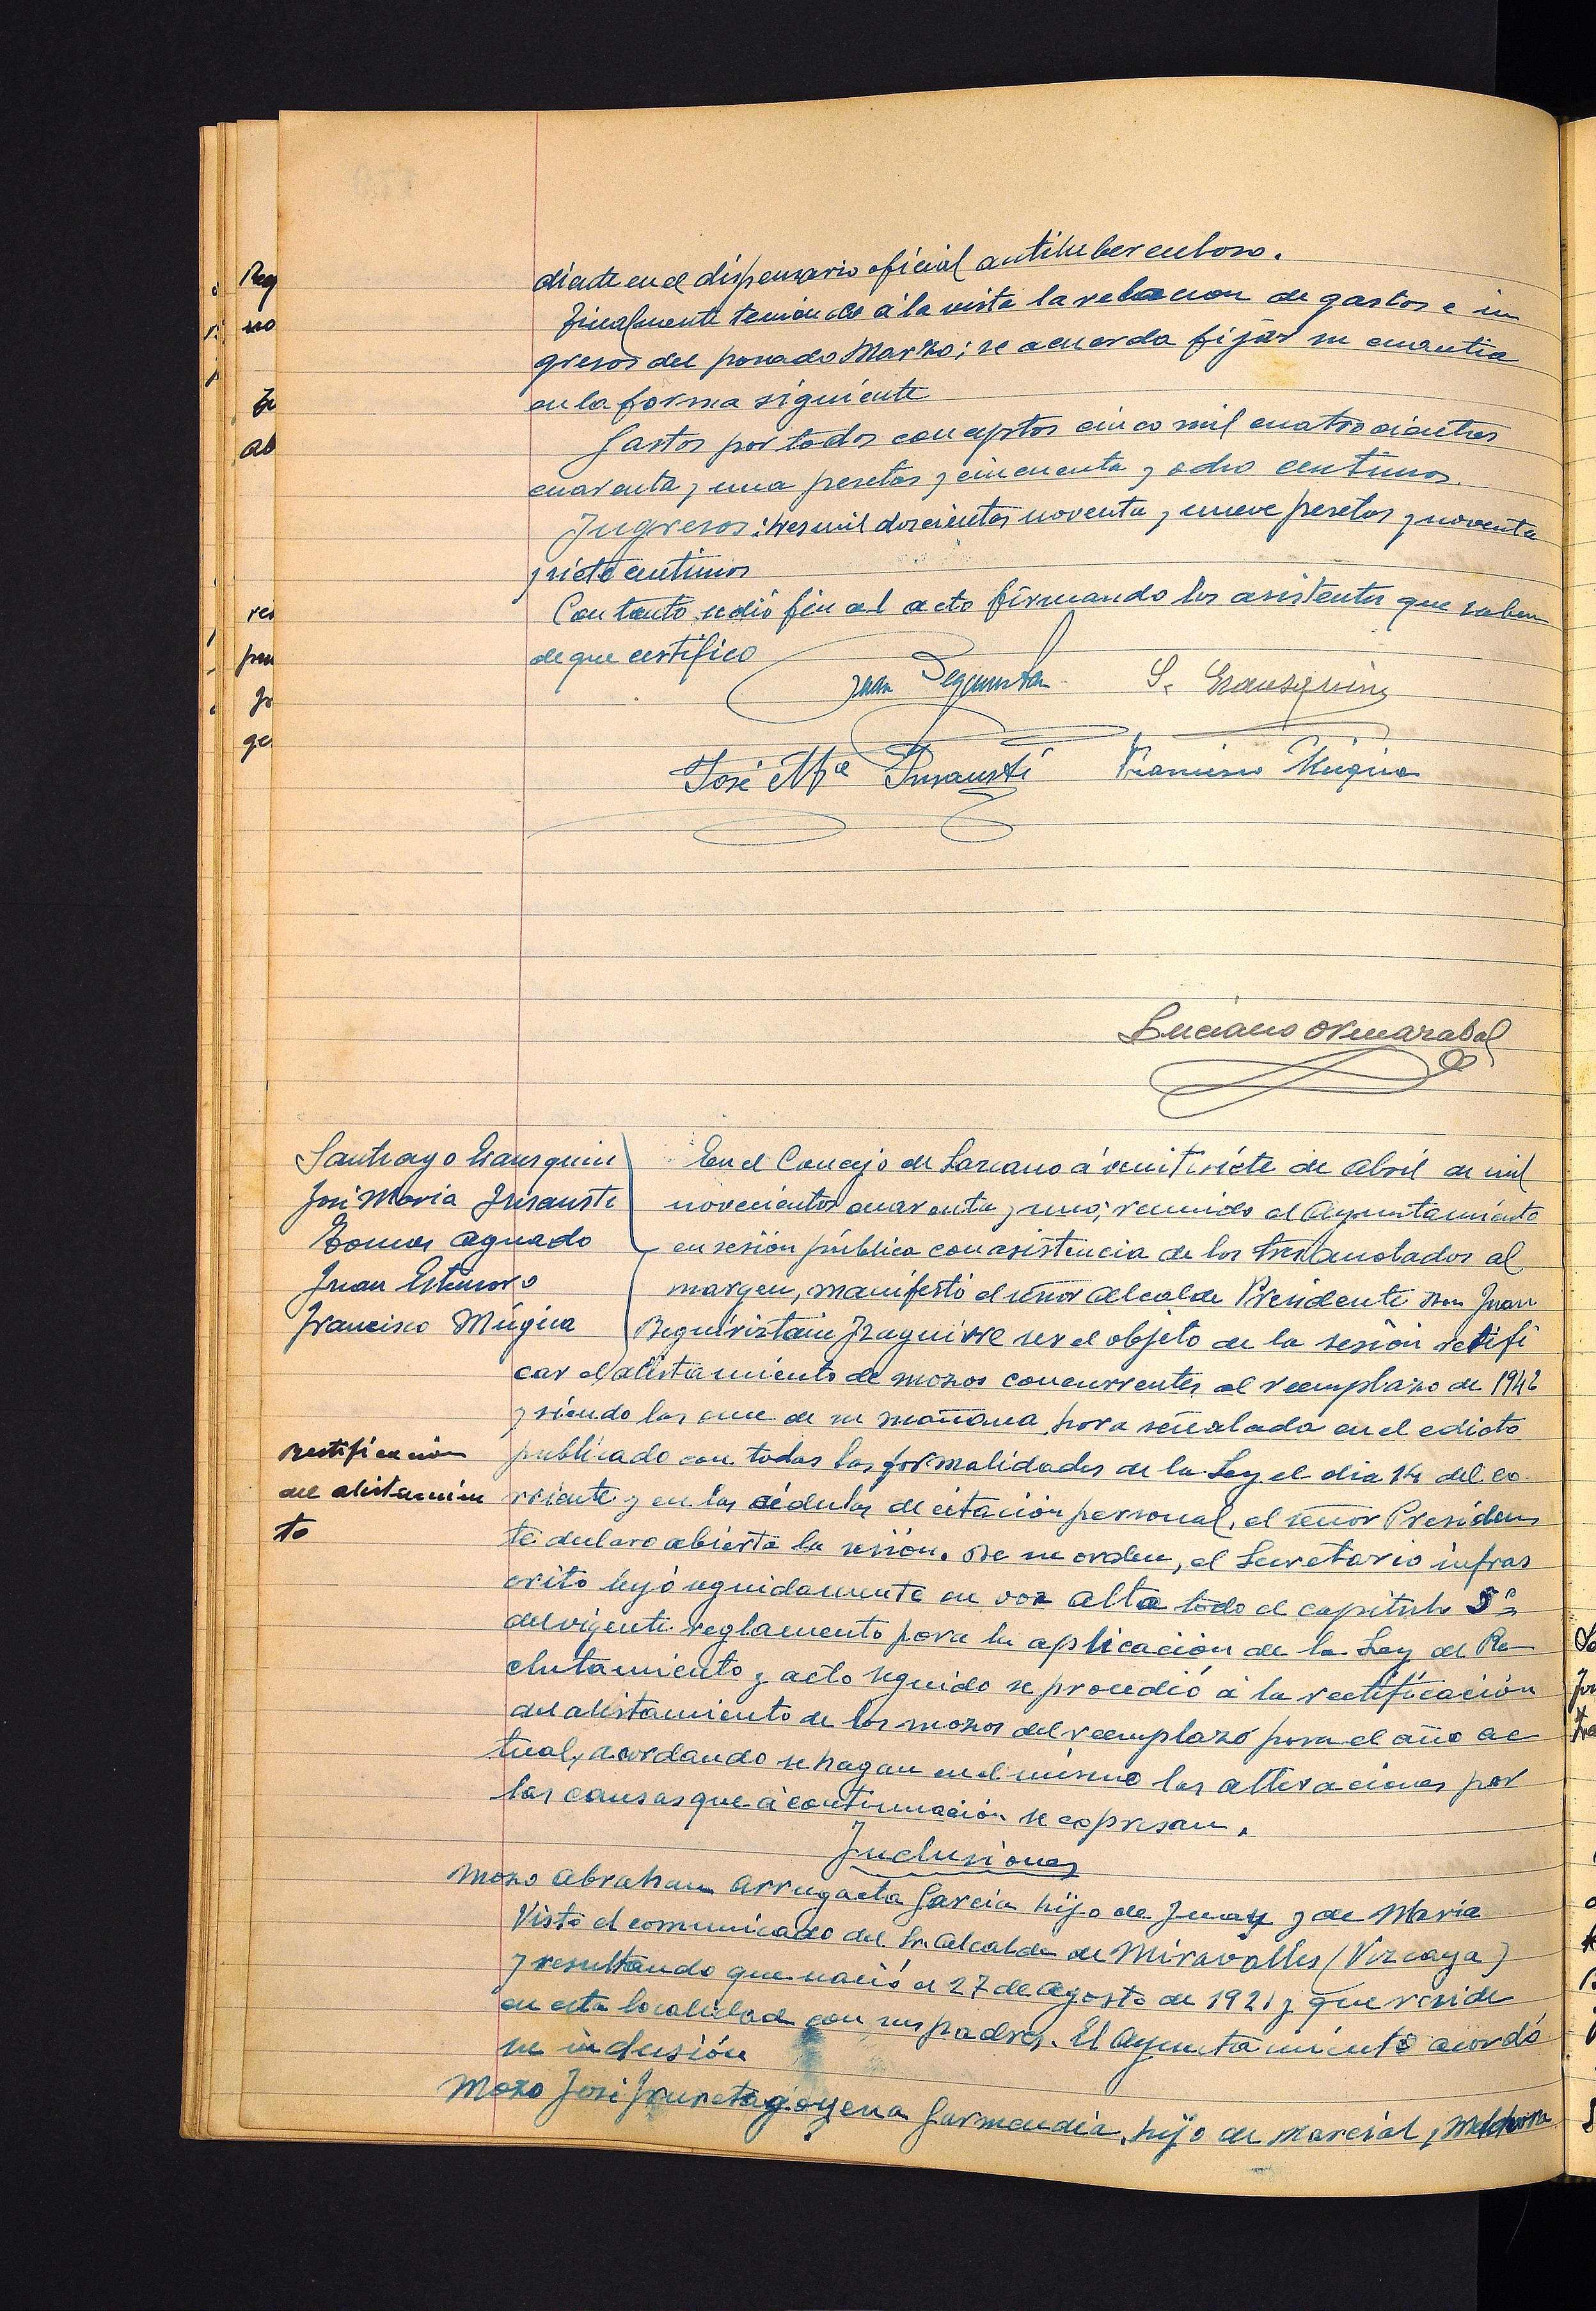 diente en el dispensario oficial antituberculoso.
Finalmente teniendo á la vista la relacion de gastos e in
gresos del pasado Marzo; se acuerda fijar su cuantia
en la forma siguiente
Gastos por todos conceptos cinco mil cuatrocientas
cuarenta y una pesetas y cincuenta y ocho centimos.
Ingresos: tres mil doscientas noventa y nueve pesetas y noventa
y siete centimos
Con tanto se dió fin al acto firmando los asistentes que saben
de que certifico
Juan S.
José Mª Insausti Francisco Múgica
Luciano Ormazabal
Santiago Esausquin
José Maria Insausti
Tomas Aguado
Juan Estensoro
Francisco Múgica
En el Concejo de Lazcano á veintisiete de Abril de mil
novecientos cuarenta y uno; reunido el Ayuntamiento
en sesión pública con asistencia de los tres anotados al
margen, manifestó el señor Alcalde Presidente Don Juan
Beguiristain Izaguirre ser el objeto de la sesión retifi
car el alistamiento de mozos concurrentes al reemplazo de 1942
y siendo las once de su mañana hora señalada en el edicto
publicado con todas las formalidades de la Ley el dia 14 del co
rriente y en las cédulas de citación personal, el señor Presiden
te declaro abierta la sesión. De su orden, el Secretario infras
crito leyó seguidamente en voz alta todo el capitulo 5º
del vigente reglamento para la aplicación de la Ley de Re
clutamiento y acto seguido se procedió á la rectificación
del alistamiento de los mozos del reemplazo para el año ac
tual, acordando se hagan en el mismo las alteraciones por
las causas que á continuación se expresan.
Rectificación
del alistamien
to
Inclusiones
Mozo Abraham Arrugaeta Garcia hijo de Juan y de Maria
Visto el comunicado del Sr. Alcalde de Miravalles (Vizcaya)
y resultando que nació el 27 de Agosto de 1921 y que reside
en esta localidad con sus padres. El Ayuntamiento acordó
su inclusión
Mozo José Iruretagoyena Garmendia, hijo de Marcial y Melchora